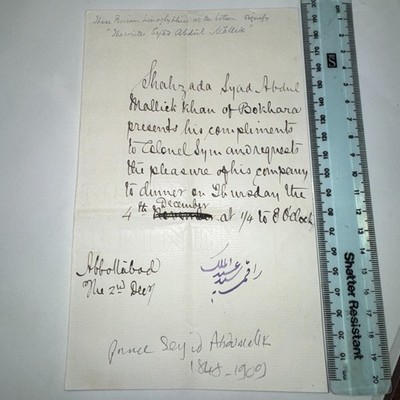 These Persian hieroglyphics at the bottom signify
"The writer Syad Abdul Mallick"
Shahzada Syad Abdul
Mallick Khan of Bokhara
presents his compliments
to Colonel Sym and requests
the pleasure of his company
to dinner on Thursday the
December
4th November at 1/4 to 8 O'Clock
Abbottabad
The 2nd Decr
راقمه
سید عبدالملک
Prince Seyid Abdumelik
1848-1909
Shatter Resistant
0 1 2 3 4 5 6 7 8 9 10 11 12 13 14 15 16 17 18 19 20